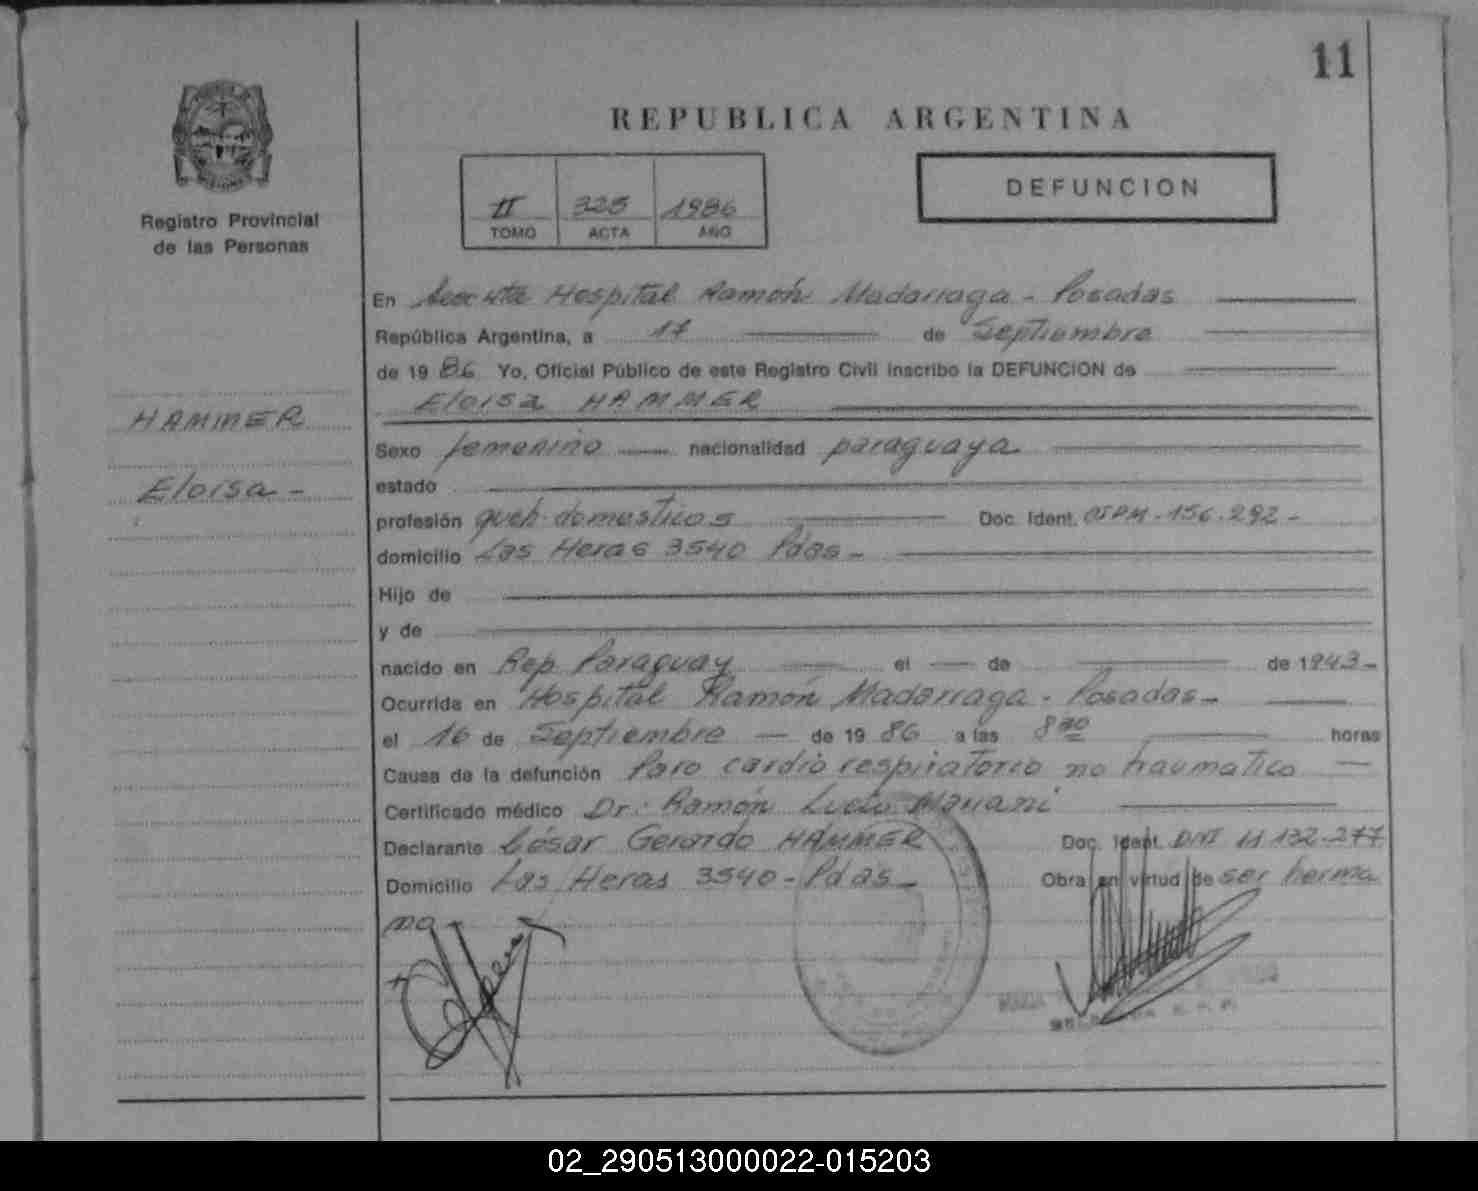 11
REPUBLICA ARGENTINA
II 325 1986
TOMO ACTA AÑO
DEFUNCION
Registro Provincial
de las Personas
HAMMER
Eloisa -
En Hospital Ramón Madarriaga - Posadas
República Argentina, a 17 de Septiembre
de 19 86 Yo, Oficial Público de este Registro Civil inscribo la DEFUNCION de
Eloisa HAMMER
Sexo femenino nacionalidad paraguaya
estado
profesión queh. domesticos Doc. Ident. 156.292 -
domicilio Las Heras 3540 Pdas -
Hijo de
y de
nacido en Rep. Paraguay el de de 1943 -
Ocurrida en Hospital Ramón Madarriaga - Posadas -
el 16 de Septiembre de 19 86 a las 8 30 horas
Causa de la defunción Paro cardio respiratorio no traumatico
Certificado médico Dr. Ramón Mariani
Declarante César Gerardo HAMMER Doc. Ident. DNI 11 132-277
Domicilio Las Heras 3540 - Pdas - Obra en virtud de ser herma
no
02_290513000022-015203